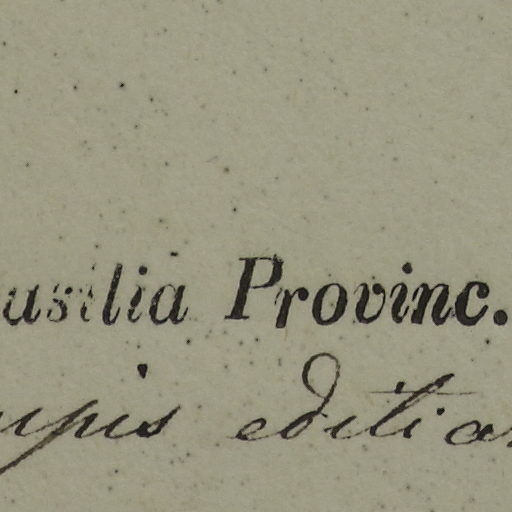 usilia Provinc.
upis editia